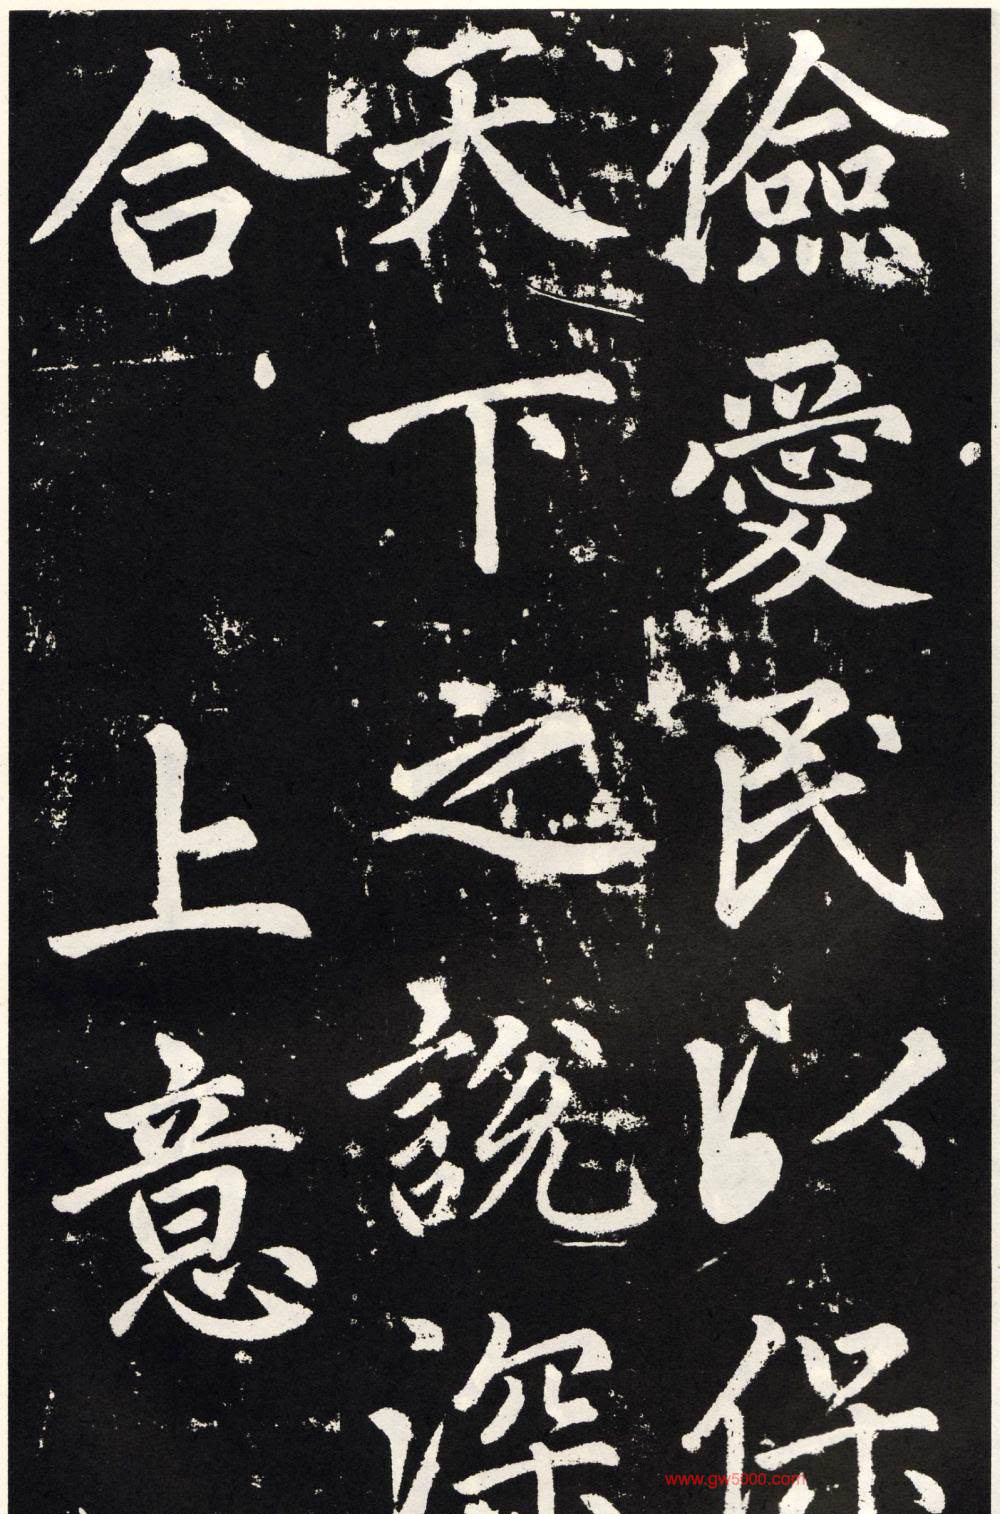 儉愛民以保
天下之說深
合上意
www.gw5000.com